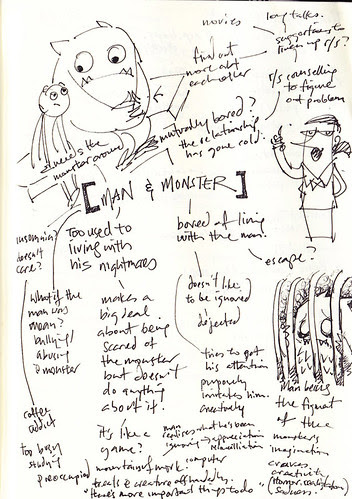 movies
long talks.
suggestions to
liven up r/s?
find out
more abt
each other
r/s counselling
to figure
out problem
mutually bored?
the relationship
has gone cold.
where's the
monster around
[MAN & MONSTER]
insomniac
doesn't
care?
Too used to
living with
his nightmares
bored of living
with the man.
escape?
what if the
man was
mean?
bullying/
abusing
monster
makes a
big deal
about being
scared of
the monster
but doesn't
do anything
about it.
doesn't like
to be ignored
dejected
tries to get
his attention
purposely
irritates him.
creatively
coffee
addict
too busy
studying
preoccupied
it's like a
game?
man
realizes what he's been
ignoring → appreciation
mountains of work.
computer
treats creature offhandedly
"there's more important things to do"
Man being
the figment
of the
monsters
imagination
craves
creativity